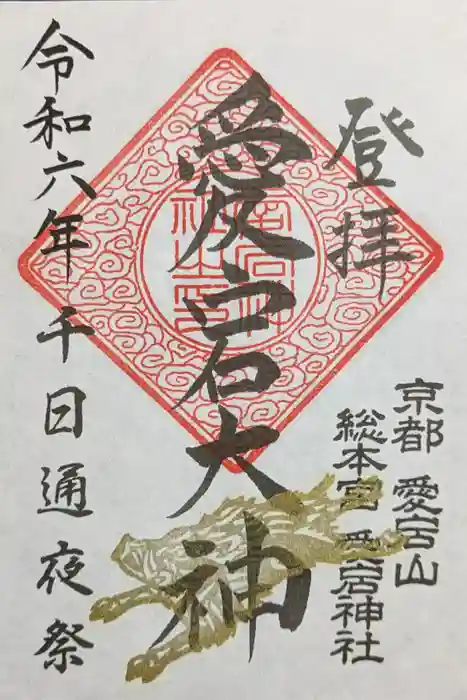 登拝
京都 愛宕山
総本宮 愛宕神社
愛宕大神
令和六年 千日通夜祭